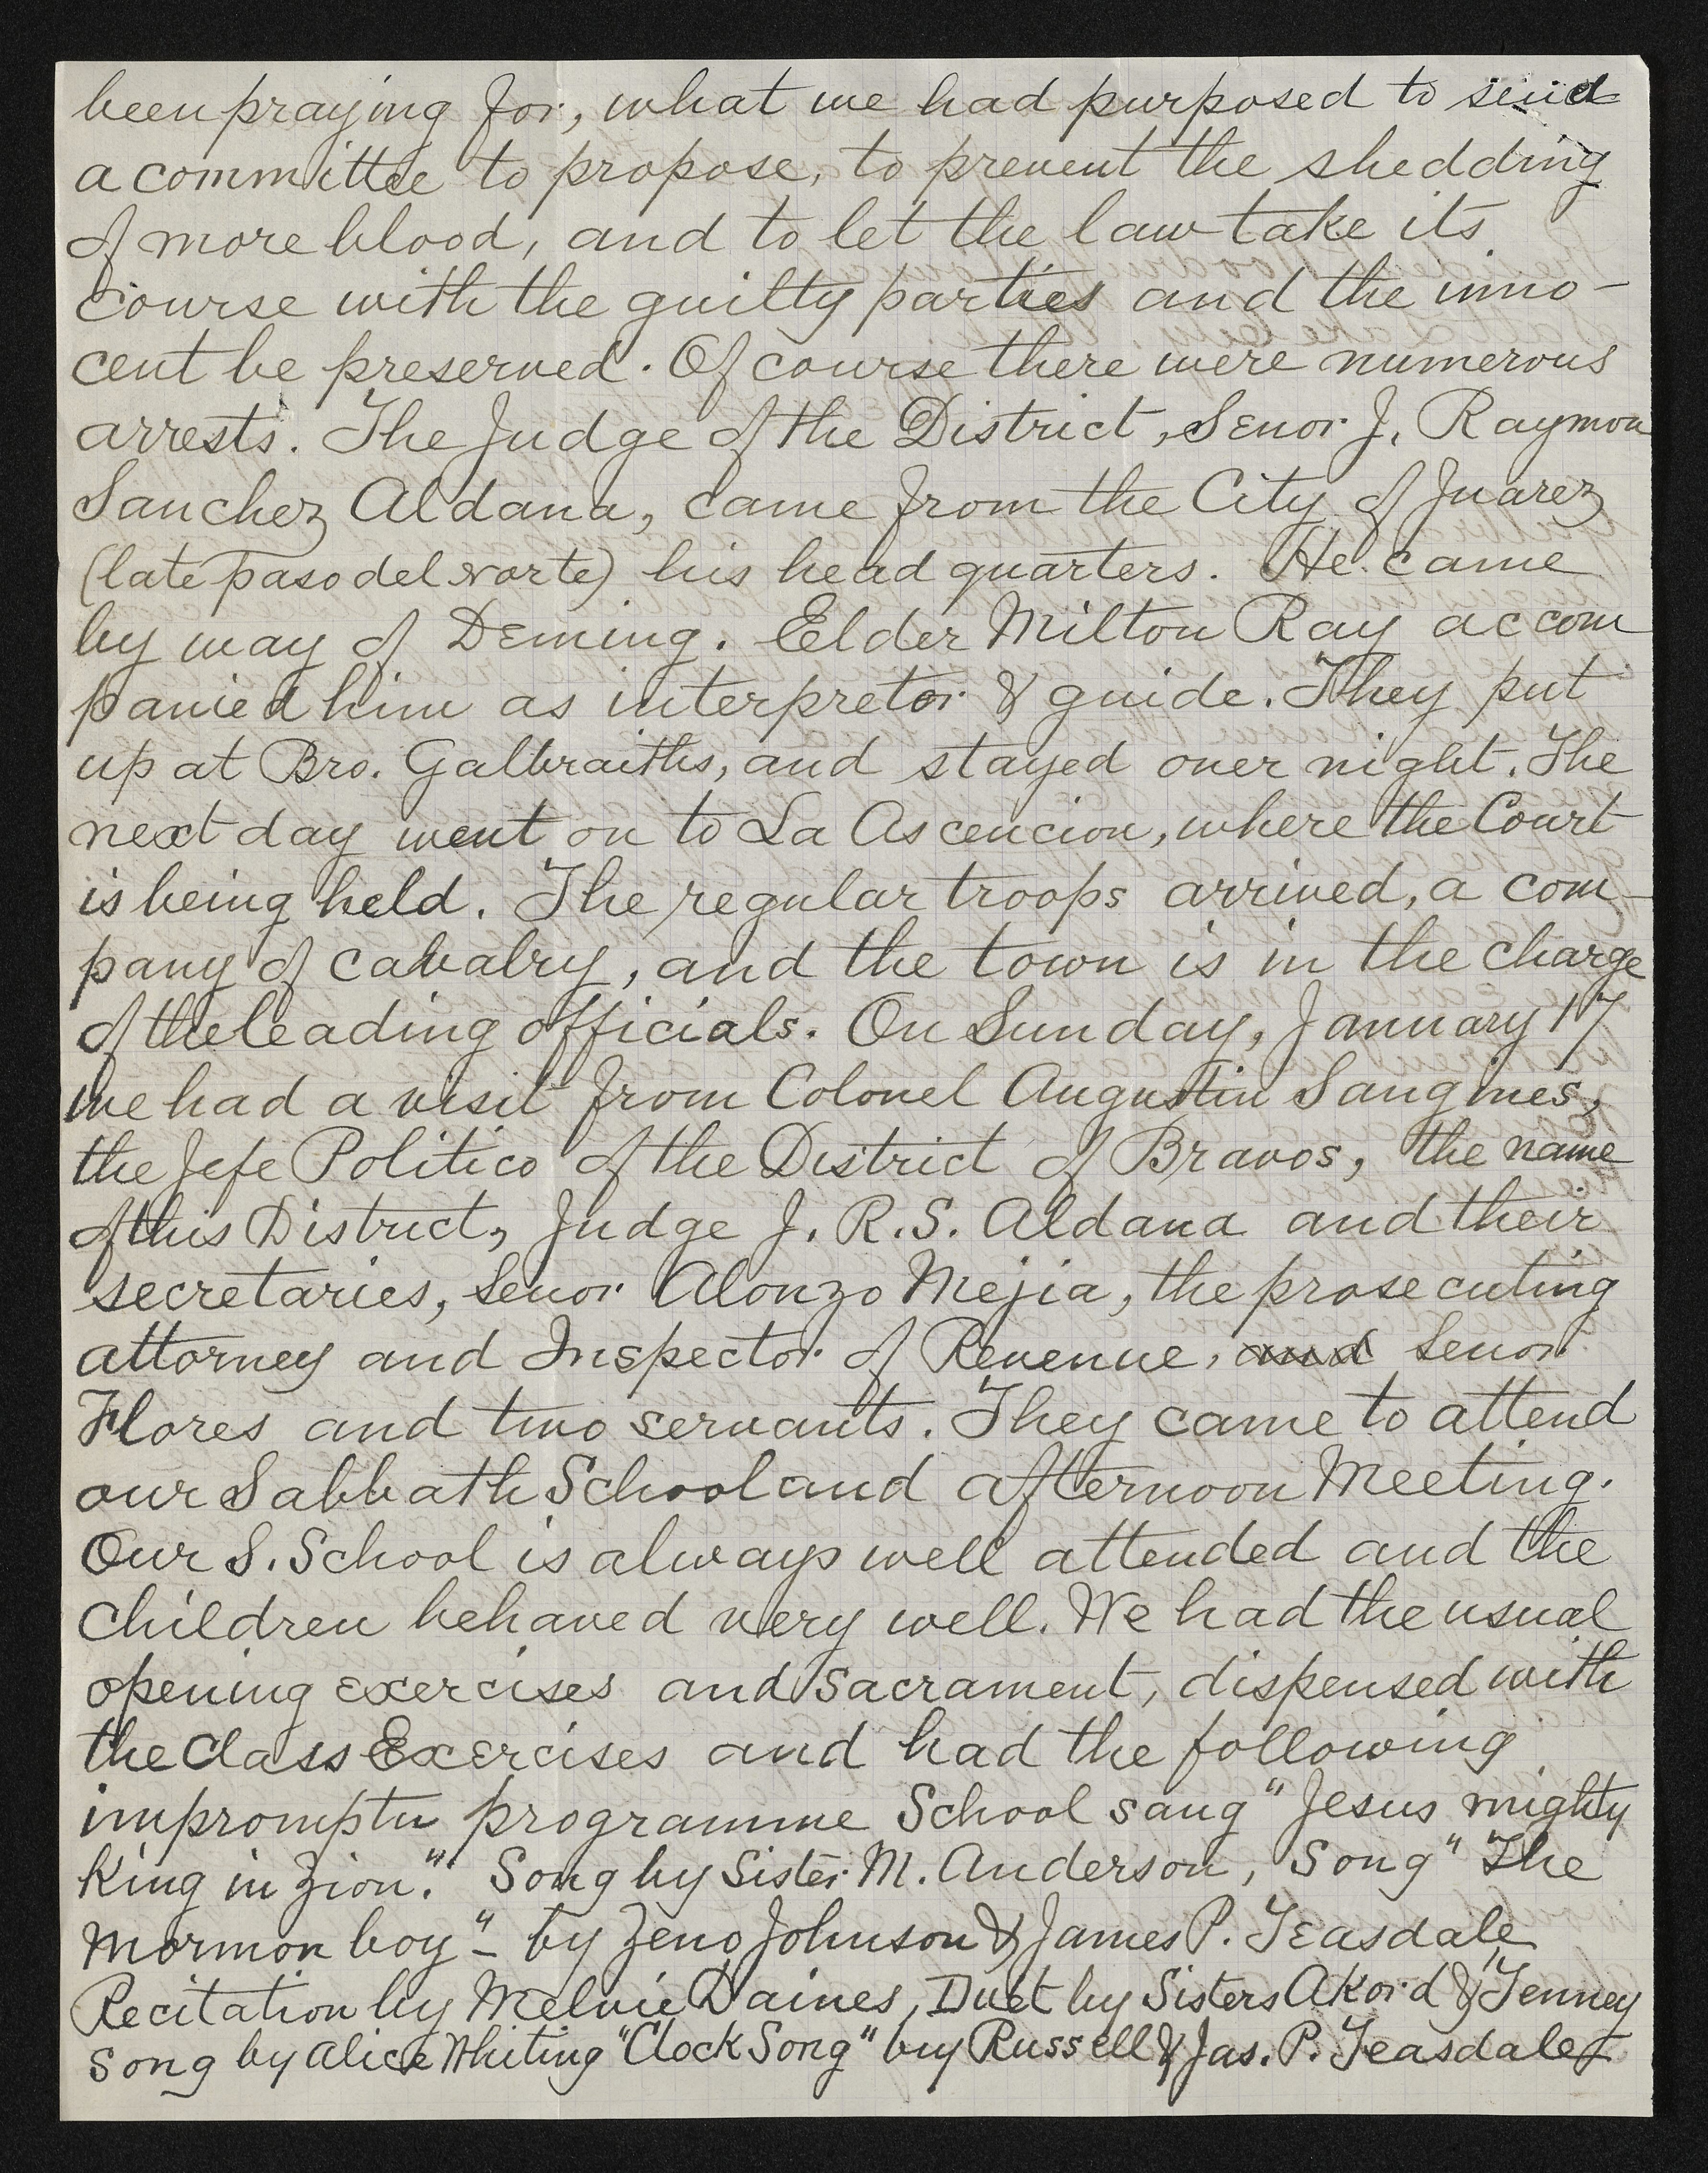 been praying for, what we had purposed to send
a committee to propose, to prevent the shedding
of more blood, and to let the law take its
course with the guilty parties and the inno-
cent be preserved. Of course there were numerous
arrests. The Judge of the District, Senor J. Raymon
Sanchez Aldana, came from the City of Juarez
(late paso del norte) his head quarters. He came
by way of Deming. Elder Milton Ray accom
panied him as interpretor & guide. They put
up at Bro. Galbraiths, and stayed over night. The
next day went on to La Ascencion, where the Court
is being held. The regular troops arrived, a com-
pany of cavalry, and the town is in the charge
of the leading officials. On Sunday, January 17
we had a visit from Colonel Augustin Sangines,
the Jefe Politico of the District of Bravos, the name
of this District, Judge J. R. S. Aldana and their
secretaries, Senor Alonzo Mejia, the prosecuting
attorney and Inspector of Revenue, and Senor
Flores and two servants. They came to attend
our Sabbath School and afternoon Meeting.
Our S. School is always well attended and the
children behaved very well. We had the usual
opening exercises and Sacrament, dispensed with
the Class Exercises and had the following
impromptu programme School sang "Jesus mighty
King in Zion." Song by Sister M. Anderson, Song "The
Mormon boy" - by Zeno Johnson & James P. Teasdale
Recitation by Melvie Daines, Duet by Sisters Akord & Tenney
Song by Alice Whiting "Clock Song" by Russell & Jas. P. Teasdale